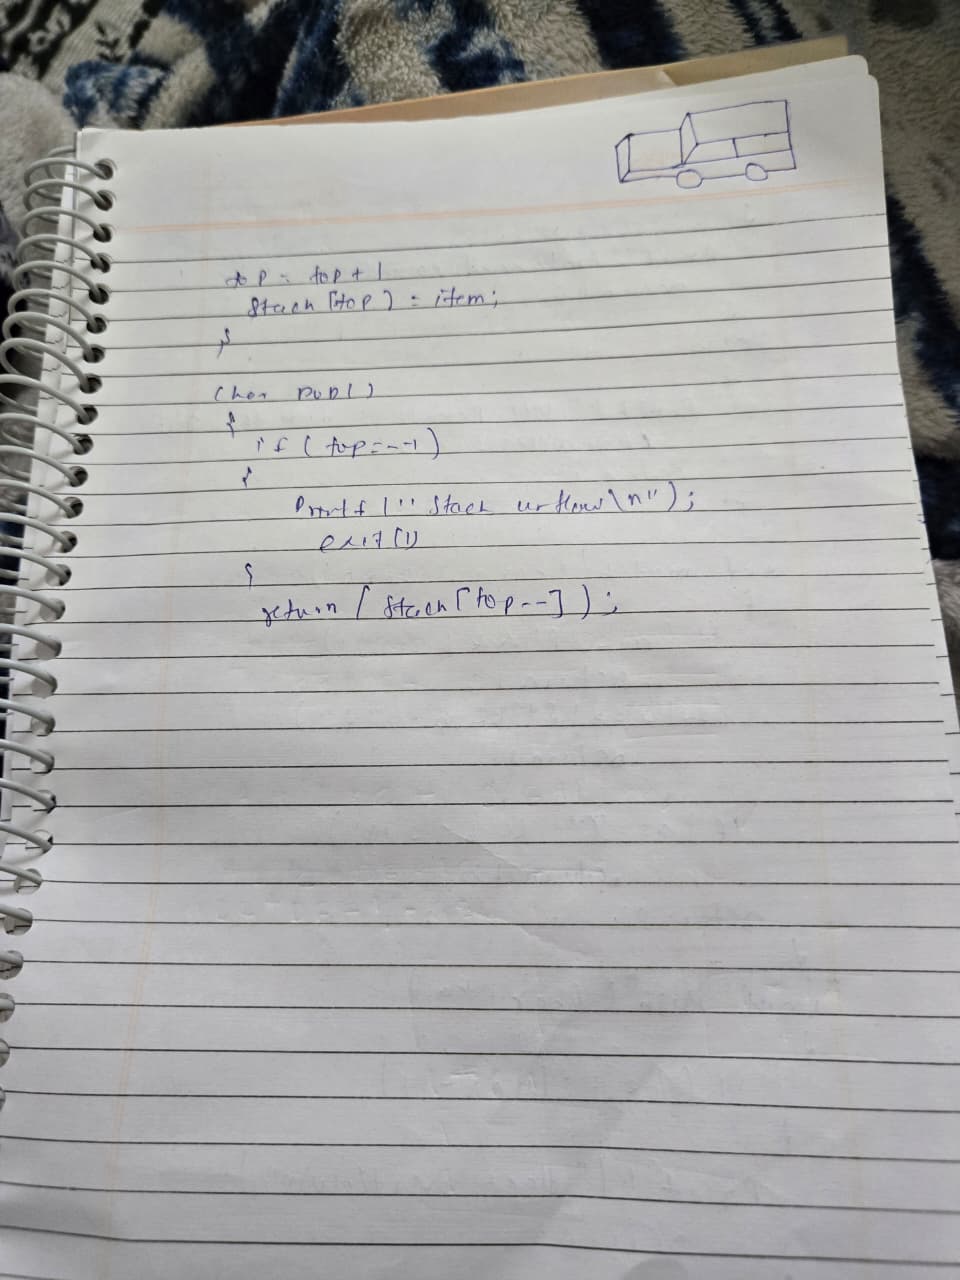 top = top + 1
Stack [top] = item;
}
Char pop()
{
if (top = - -1)
{
Printf (" Stack urflow \n");
exit(1)
}
return ( Stack [top--] );